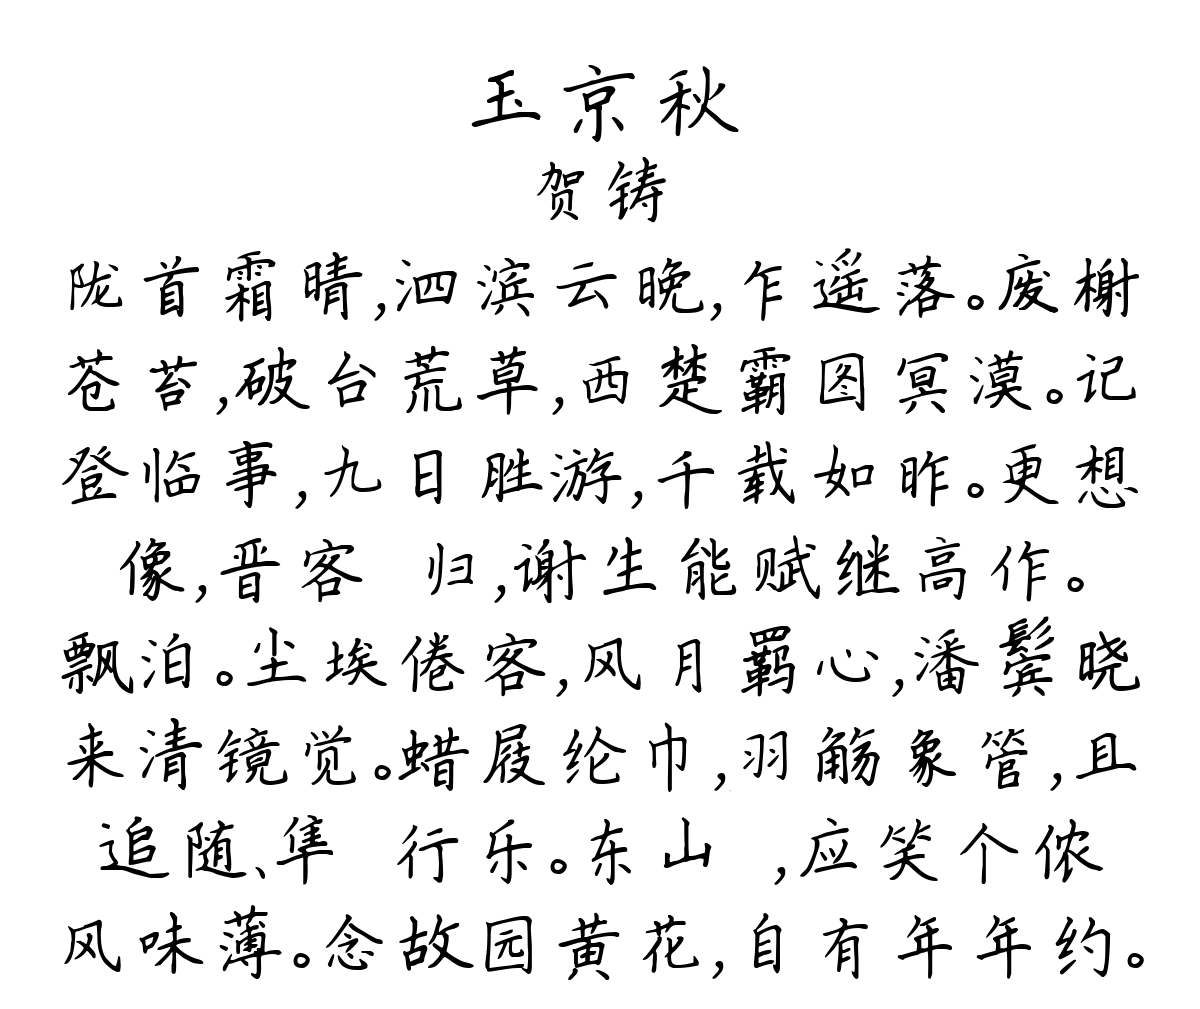 玉京秋
贺铸
陇首霜晴,泗滨云晚,乍遥落。废榭
苍苔,破台荒草,西楚霸图冥漠。记
登临事,九日胜游,千载如昨。更想
像,晋客 归,谢生能赋继高作。
飘泊。尘埃倦客,风月羁心,潘鬓晓
来清镜觉。蜡屐纶巾,羽觞象管,且
追随、隼 行乐。东山 ,应笑个侬
风味薄。念故园黄花,自有年年约。